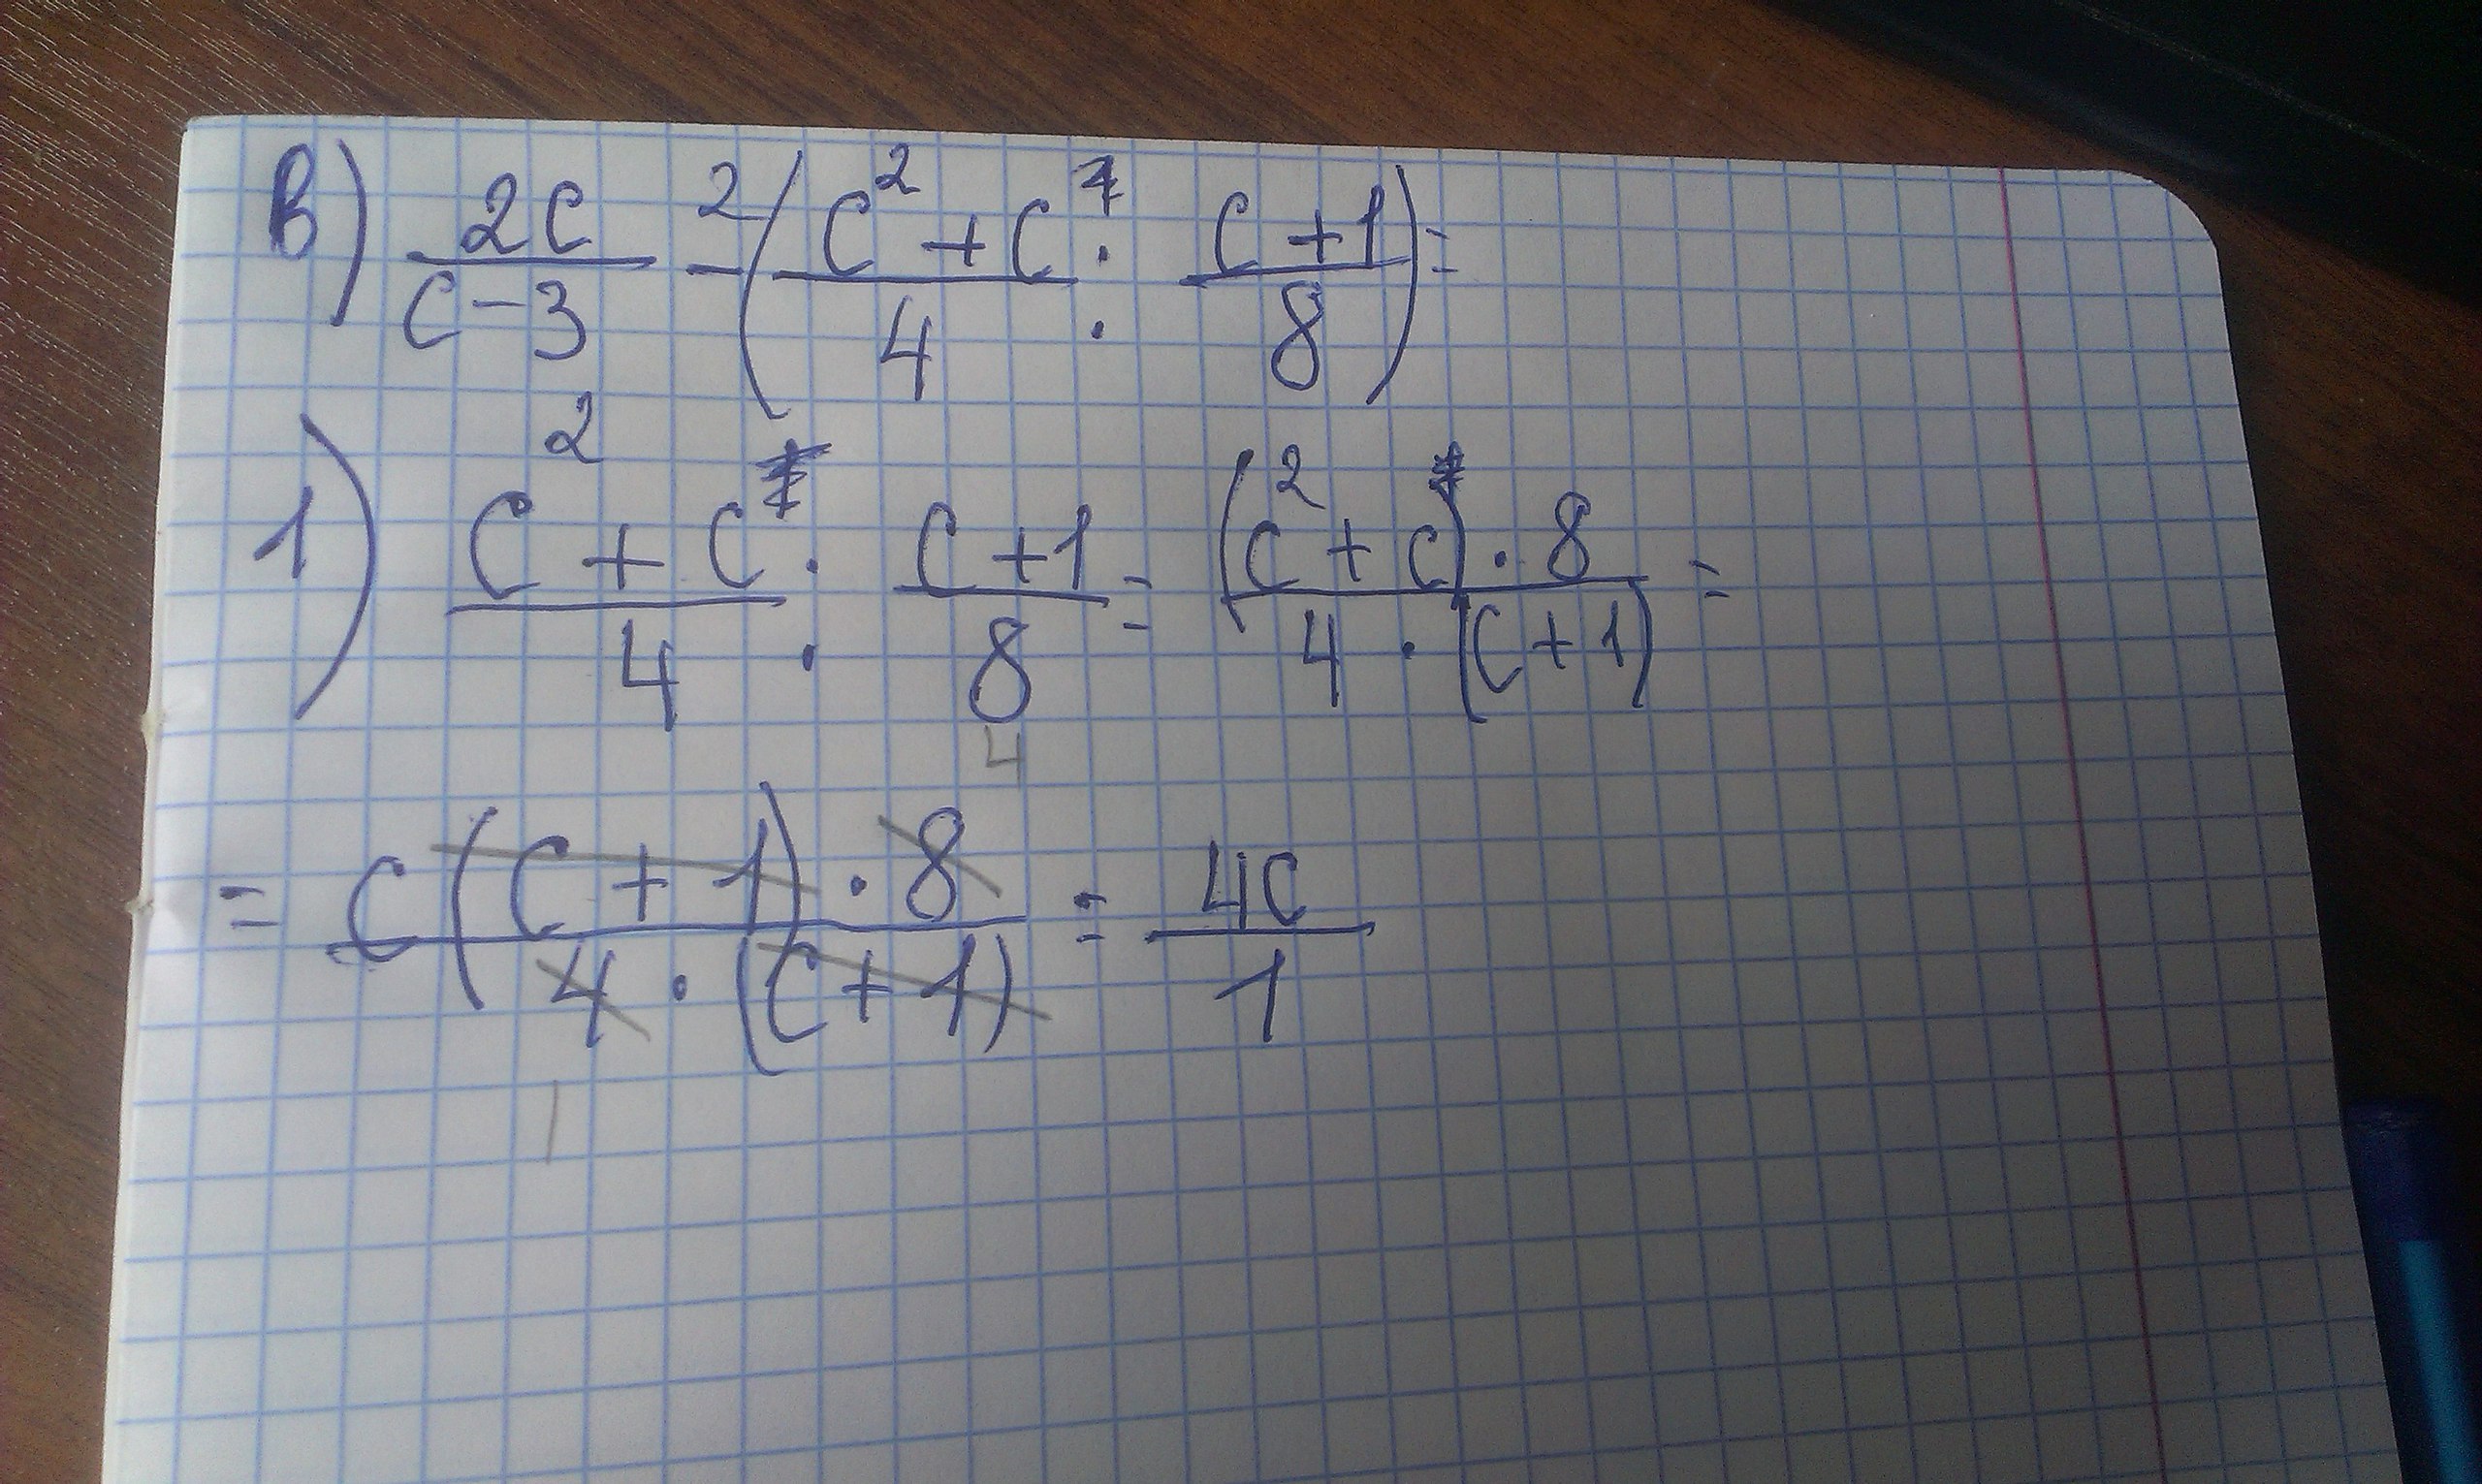 В) 2c/(c-3) -² ((c²+c)/4 : (c+1)/8) =
1) (c²+c)/4 : (c+1)/8 = ((c²+c)·8)/(4·(c+1)) =
= (c(c+1)·8)/(4·(c+1)) = 4c/1
4
1